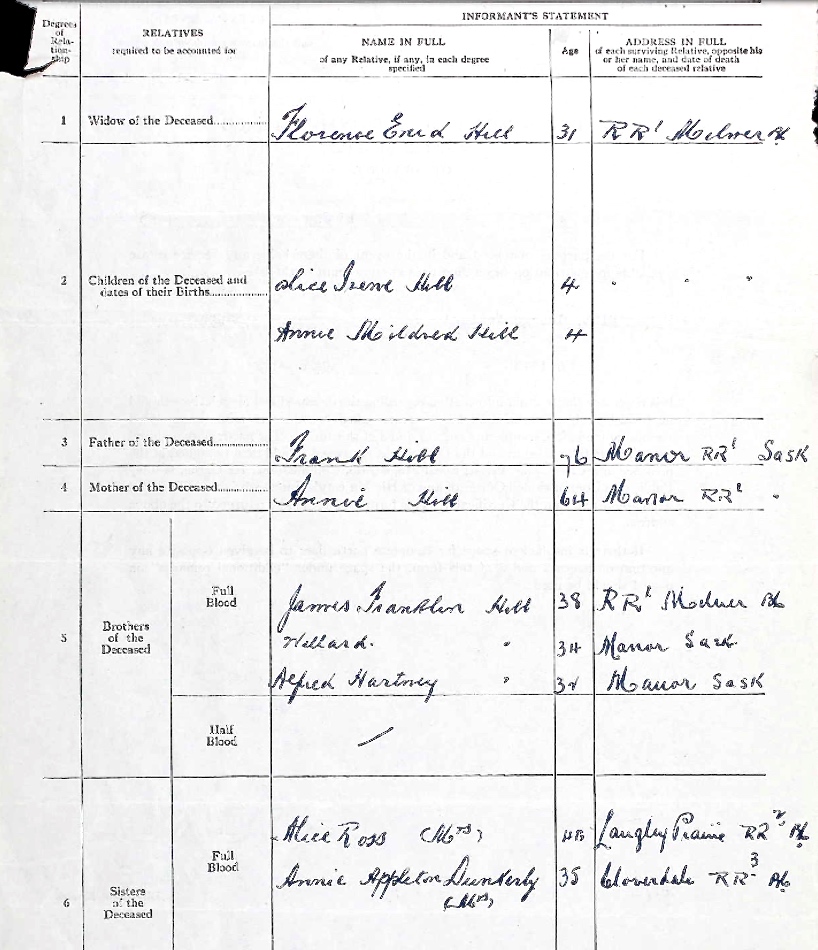 Degrees of Rela-tion-ship
RELATIVES
required to be accounted for
INFORMANT'S STATEMENT
NAME IN FULL
of any Relative, if any, in each degree
specified
Age
ADDRESS IN FULL
of each surviving Relative, opposite his
or her name, and date of death
of each deceased relative
1 Widow of the Deceased............... Florence Enid Hill 31 RR1 Milner BC
2 Children of the Deceased and
dates of their Births................. Alice Irene Hill 4 " " "
Annie Mildred Hill 4
3 Father of the Deceased............... Frank Hill 76 Manor RR1 Sask
4 Mother of the Deceased.............. Annie Hill 64 Manor RR1 "
5 Brothers
of the
Deceased
Full
Blood
James Franklin Hill 38 RR1 Milner BC
Willard. " 34 Manor Sask.
Alfred Hartney " 34 Manor Sask
Half
Blood
6 Sisters
of the
Deceased
Full
Blood
Alice Ross (Mrs) Langley Prairie RR2 BC
Annie Appleton Dunkerly 35 Cloverdale RR3 BC
(Mrs)